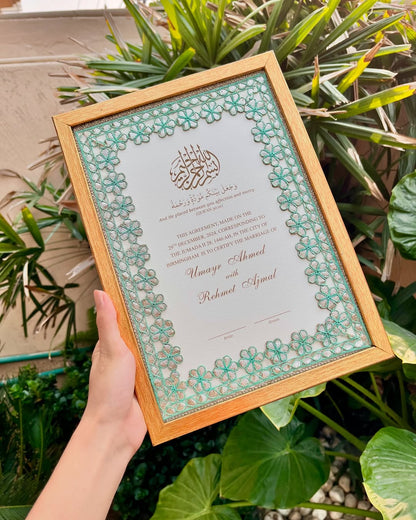 بسم الله الرحمن الرحيم
وَجَعَلَ بَيْنَكُم مَّوَدَّةً وَرَحْمَةً
And He placed between you affection and mercy
THIS AGREEMENT MADE ON THE
20TH DECEMBER, 2024, CORRESPONDING TO
THE JUMADA II 1446 AH, IN THE CITY OF
BIRMINGHAM IS CERTIFY THE MARRIAGE OF
Umayr Ahmed
with
Rehmet Ajmal